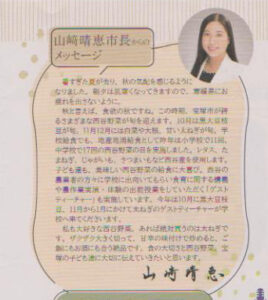 山﨑晴恵市長からの
メッセージ
暑すぎた夏が去り、秋の気配を感じるように
なりました。朝夕は気温が低くなってきますので、
お疲れを出さないように。
秋と言えば、食欲の秋ですね。この時期、宝塚市が誇
るさまざまな西谷野菜が旬を迎えます。10月は黒大豆枝
豆が旬、11月12月には白菜や大根、甘い太ねぎが旬。学
校給食でも、地産地消給食として昨年は小学校で21回、
中学校で17回の西谷野菜の日を実施しました。レタス、た
まねぎ、じゃがいも、さつまいもなど西谷産を使用します。
子ども達も、美味しい西谷野菜の給食に大喜び。西谷の
農業者の方々に学校に出向いてもらい食育に関する講義
や農作業実演・体験の出前授業をしていただく「ゲスト
ティーチャー」も実施しています。今年は10月に黒大豆枝
豆、11月から1月にかけて太ねぎのゲストティーチャーが学
校へ来てくださいます。
私も大好きな西谷野菜。あれば絶対買うのは太ねぎで
す。ザクザク大きく切って、甘辛の味付けで炒めると、ご
飯にもお酒にも合う絶品です。食の大切さと西谷野菜、宝
塚の子ども達に大切に伝えていきたいと思います。
山﨑晴恵